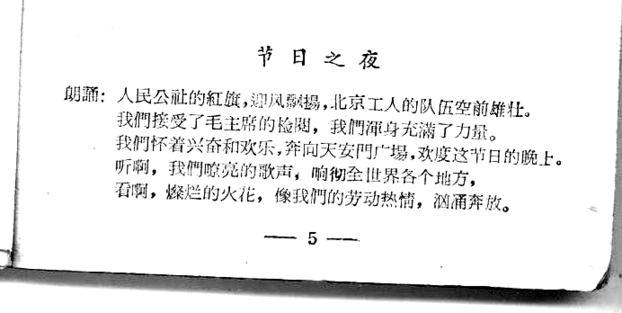 节日之夜
朗誦：人民公社的紅旗，迎风飘揚，北京工人的队伍空前雄壮。
我們接受了毛主席的检閱，我們渾身充滿了力量。
我們怀着兴奋和欢乐，奔向天安門广場，欢度这节日的晚上。
听啊，我們嘹亮的歌声，响彻全世界各个地方，
看啊，燦烂的火花，像我們的劳动热情，汹涌奔放。
—— 5 ——